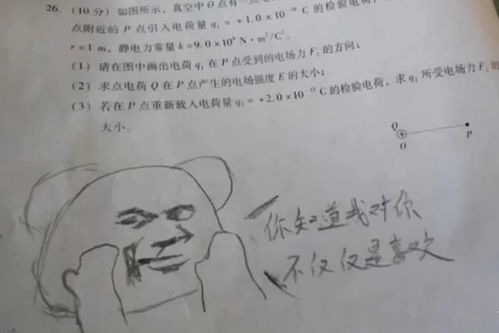 26. (10分) 如图所示，真空中O点有一点电
点附近的P点引入电荷量q₁=+1.0×10⁻¹⁰C的检验电荷，
r=1m，静电力常量k=9.0×10⁹N·m²/C²。
(1) 请在图中画出电荷q₁在P点受到的电场力F₁的方向；
(2) 求点电荷Q在P点产生的电场强度E的大小；
(3) 若在P点重新放入电荷量q₂=+2.0×10 C的检验电荷，求q₂所受电场力F₂的
大小。
Q
O
P
你知道我对你
不仅仅是喜欢